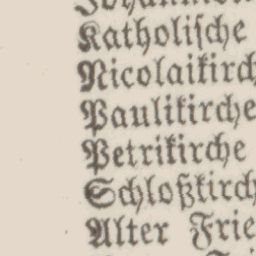 Katholische
Nicolaikirch
Paulikirche
Petrikirche
Schloßkirch
Alter Frie